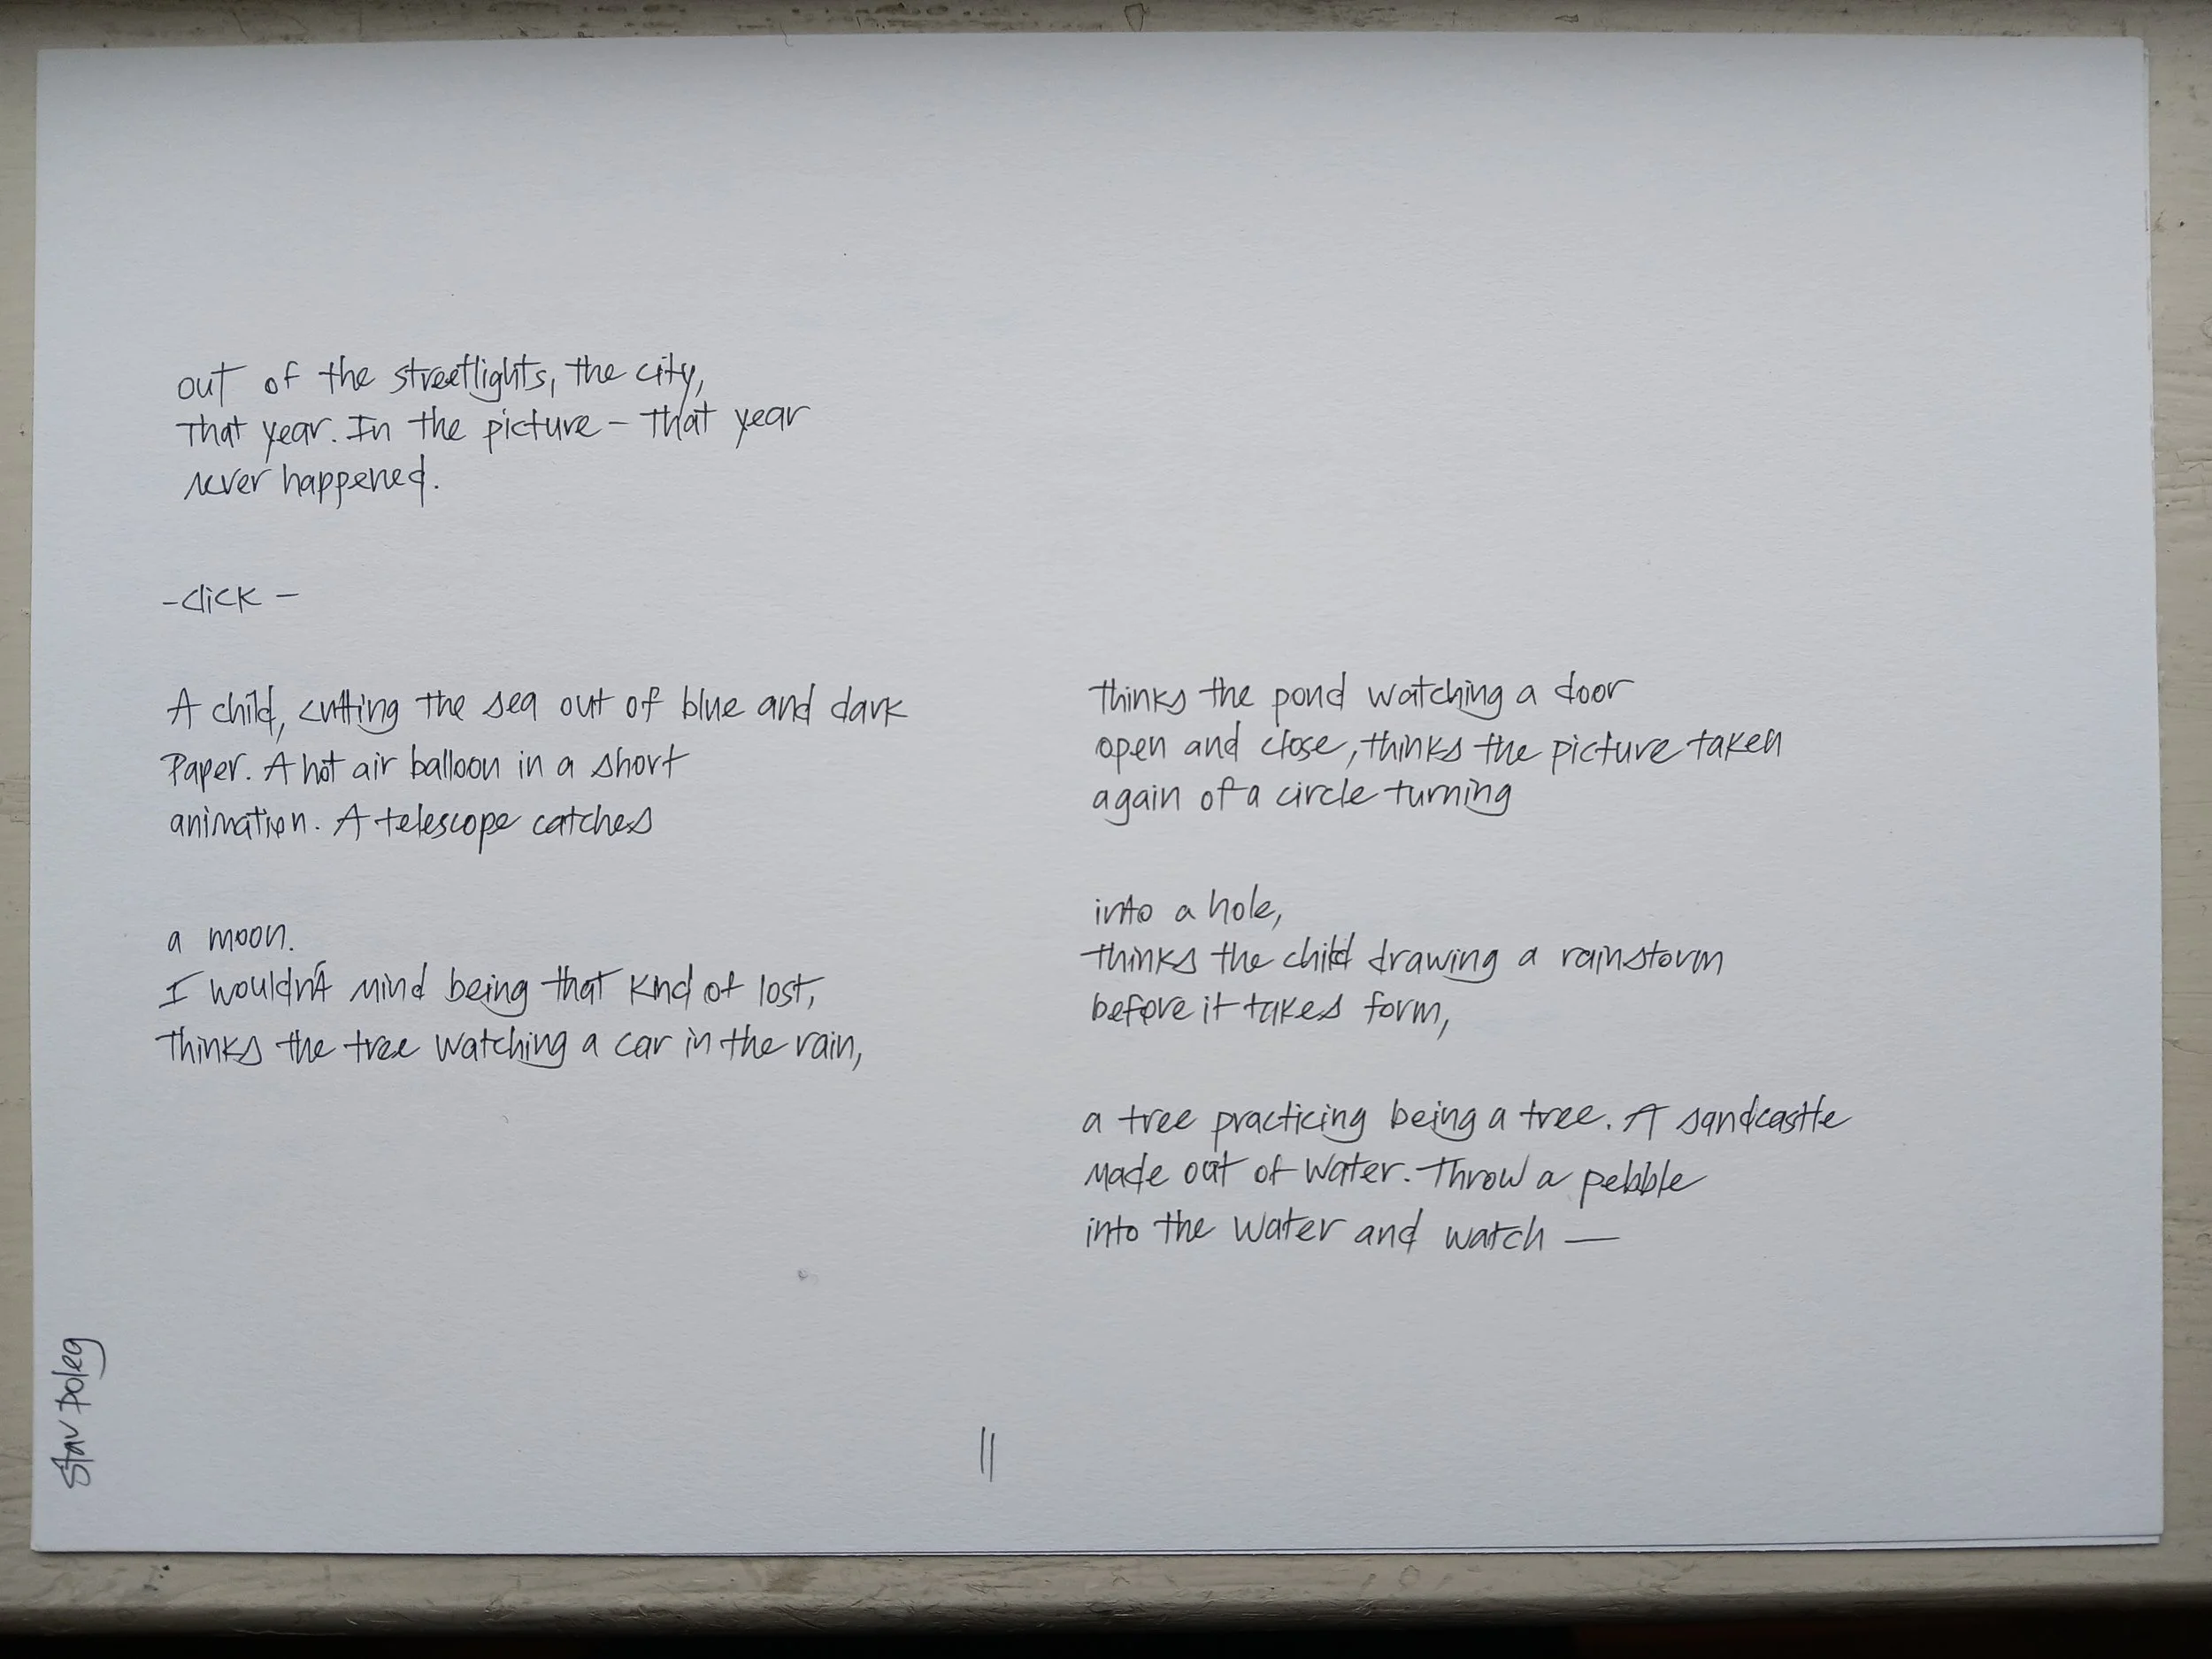 out of the streetlights, the city,
that year. In the picture – that year
never happened.
– click –
A child, cutting the sea out of blue and dark
Paper. A hot air balloon in a short
animation. A telescope catches
a moon.
I wouldn't mind being that kind of lost,
thinks the tree watching a car in the rain,
thinks the pond watching a door
open and close, thinks the picture taken
again of a circle turning
into a hole,
thinks the child drawing a rainstorm
before it takes form,
a tree practicing being a tree. A sandcastle
made out of water. Throw a pebble
into the water and watch —
Stav Poleg
11